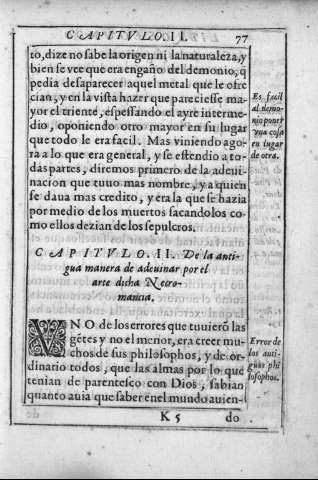 CAPITVLO. II. 77
to, dize no sabe la origen ni la naturaleza, y
bien se vee que era engaño del demonio, q̃
pedia desaparecer aquel metal que le ofre
cian, y en la vista hazer que pareciesse ma-
yor el triente, espessando el ayre interme-
dio, oponiendo otro mayor en su lugar
que todo le era facil. Mas viniendo ago-
ra a lo que era general, y se estendio a to-
das partes, diremos primero de la adeui-
nacion que tuuo mas nombre, y a quien
se daua mas credito, y era la que se hazia
por medio de los muertos sacandolos co-
mo ellos dezian de los sepulcros.
Es facil
al demo-
nio poner
vna cosa
en lugar
de otra.
CAPITVLO. II. De la anti-
gua manera de adeuinar por el
arte dicha Necro-
mancia.
VNO de los errores que tuuierõ las
gẽtes y no el menor, era creer mu-
chos de sus philosophos, y de or-
dinario todos, que las almas por lo que
tenian de parentesco con Dios, sabian
quanto auia que saber en el mundo auien-
Error de
los anti-
guos phi
losophos.
K 5 do